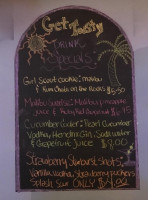 Get Tasty
Drink
Specials
Girl Scout Cookie: Malibu
& Rum Chata on the Rocks $6.50
Malibu Sunrise: Malibu, pineapple
juice &
Cucumber Cooler: Pearl Cucumber
Vodka, Hendricks Gin, Soda water
& Grapefruit Juice $8.00
Strawberry Starburst Shots:
Vanilla Vodka, Strawberry Puckers
Splash Sour ONLY $4.25